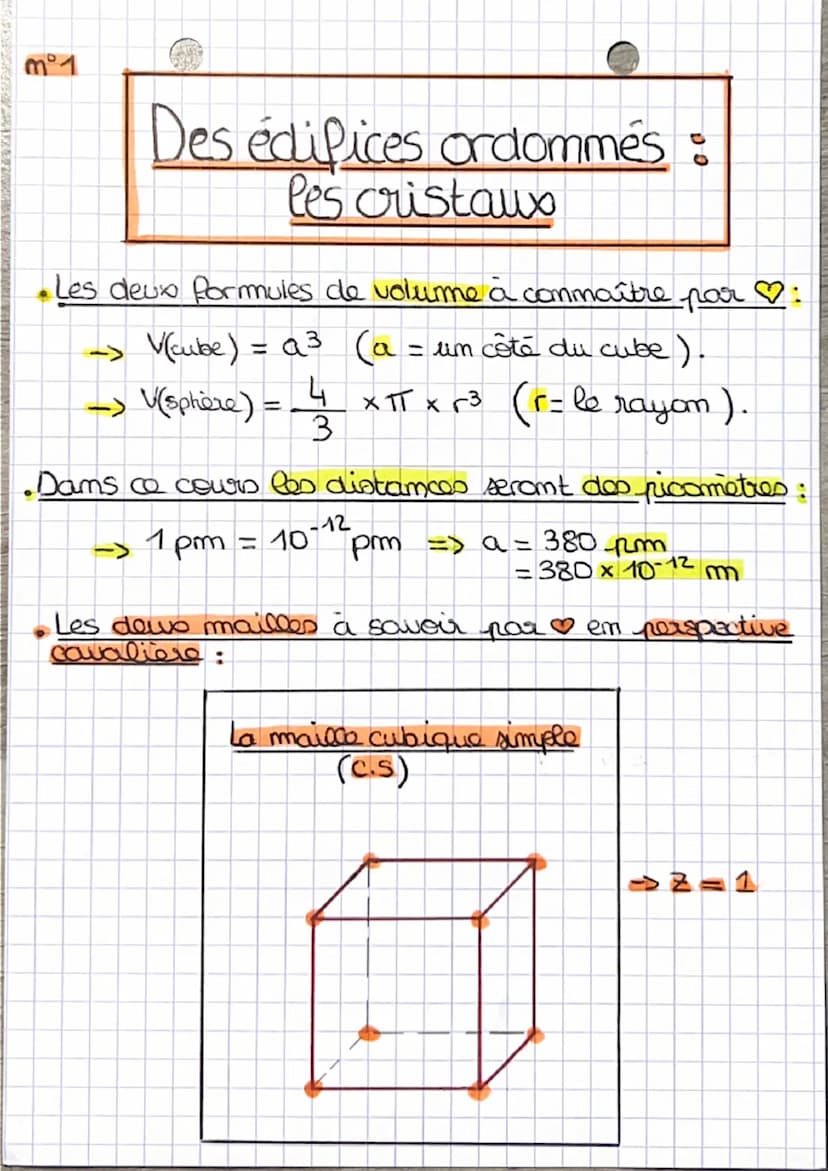 n°1
Des édifices ordonnés :
les cristaux
• Les deux formules de volume à connaître par ♡ :
→ V(cube) = a³ (a = un côté du cube).
→ V(sphère) = 4/3 × π × r³ (r = le rayon).
• Dans ce cours les distances seront des picomètres :
→ 1 pm = 10⁻¹² pm => a = 380 pm
= 380 × 10⁻¹² m
• Les deux mailles à savoir par ♡ en perspective
cavalière :
La maille cubique simple
(C.S)
→ Z = 1